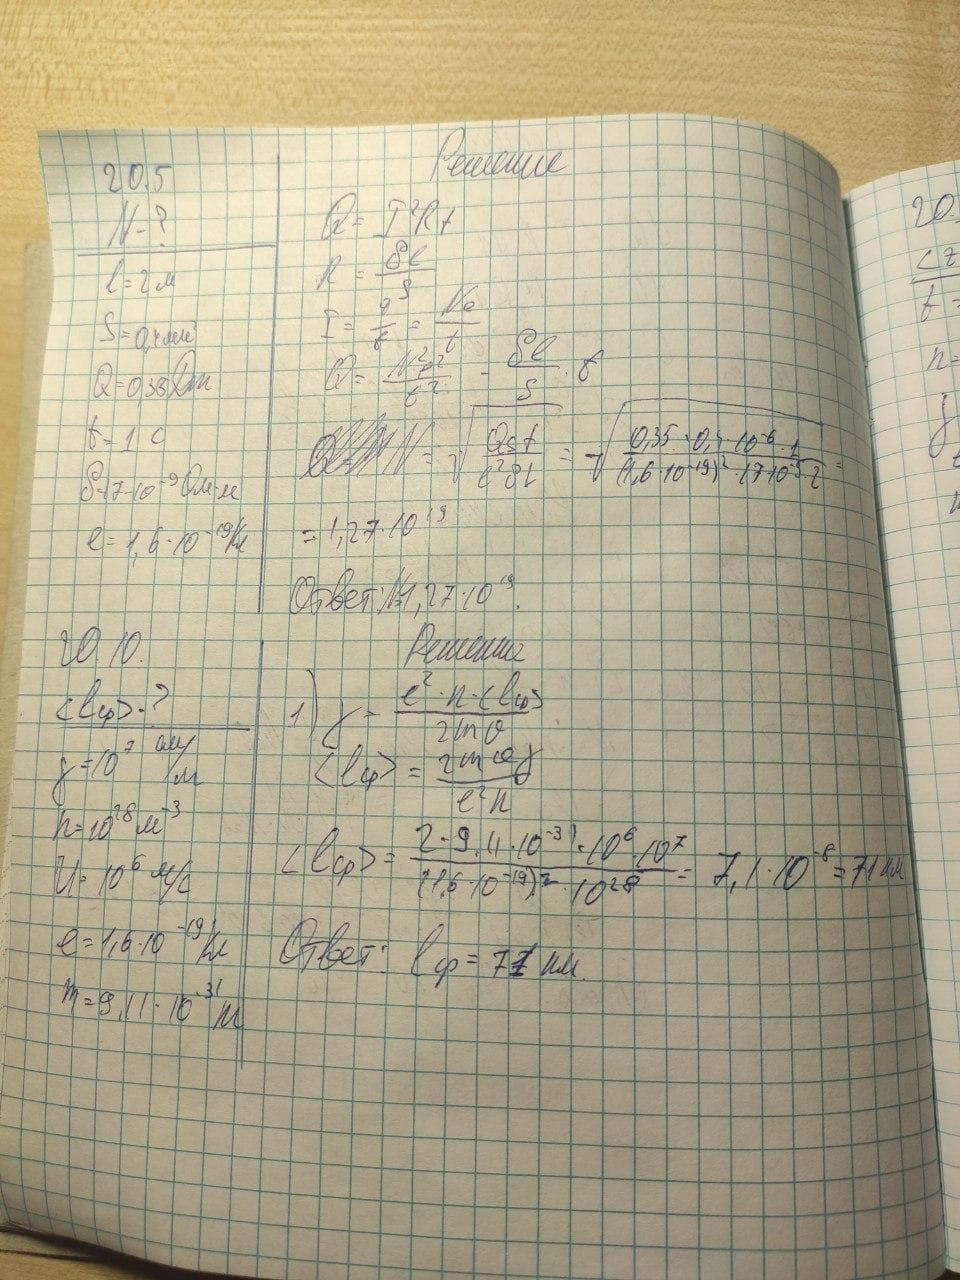 20.5
Решение
N-?
l=2м
S=0,4мм²
Q=0,35Дж
t=1 с
ρ=17·10⁻⁹Ом·м
e=1,6·10⁻¹⁹Кл
Q= I²Rt
R = ρl/S
I = q/t = Ne/t
Q= N²e²/t² · ρl/S · t
N = √(QSt/e²ρl) = √(0,35·0,4·10⁻⁶·1/(1,6·10⁻¹⁹)²·17·10⁻⁹·2) =
=1,27·10¹⁹
Ответ: N=1,27·10¹⁹.
20.10.
Решение
<lср>-?
γ=10⁷ см/м
n=10²⁸м⁻³
U=10⁶ м/с
e=1,6·10⁻¹⁹Кл
m=9,11·10⁻³¹кг
1) γ = e²·n·<lср>/2mυ
<lср> = 2mυγ/e²n
<lср> = 2·9,11·10⁻³¹·10⁶·10⁷/(1,6·10⁻¹⁹)²·10²⁸ = 7,1·10⁻⁸=71нм
Ответ: lср = 71 нм.
20.
t=
n=